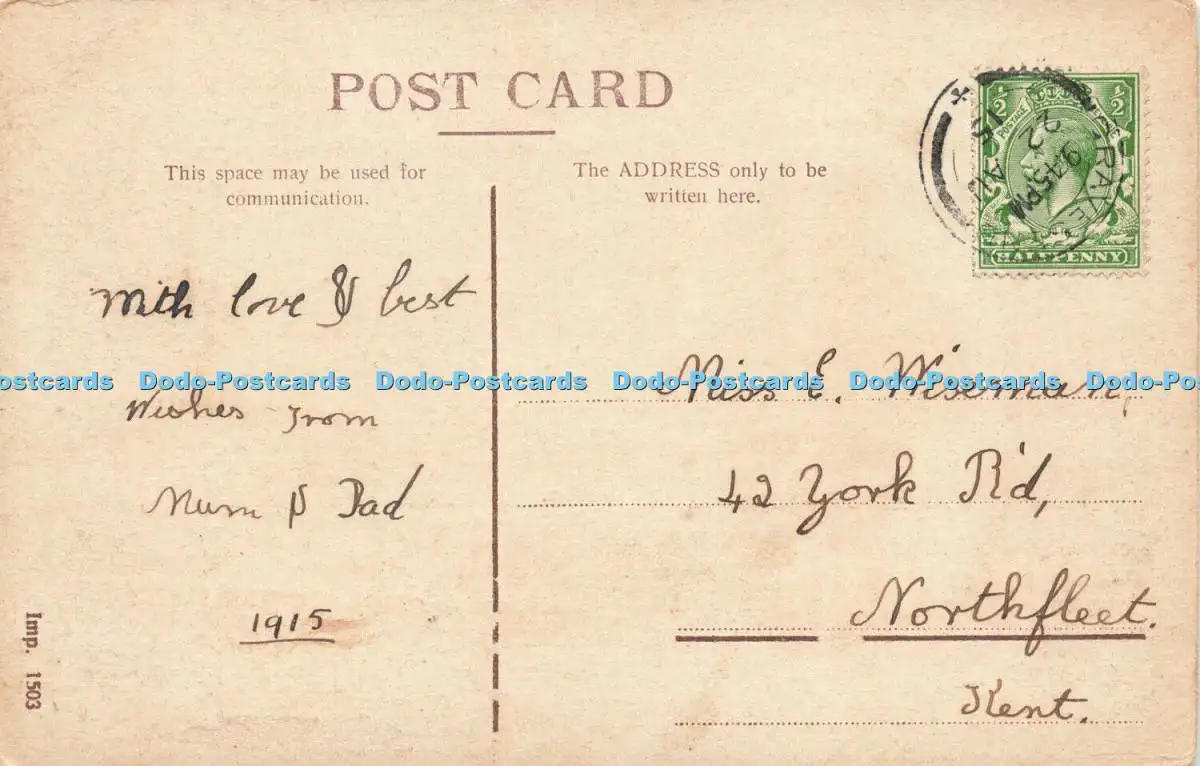 POST CARD
This space may be used for
communication.
The ADDRESS only to be
written here.
With love & best
Wishes from
Mum & Dad
1915
Miss E. Wiseman,
42 York R'd,
Northfleet.
Kent.
Imp. 1503
½ ½
POSTAGE
HALFPENNY
GRAVES
9.45PM
22 AU
15
Dodo-Postcards Dodo-Postcards Dodo-Postcards Dodo-Postcards Dodo-Postcards Dodo-Postcards